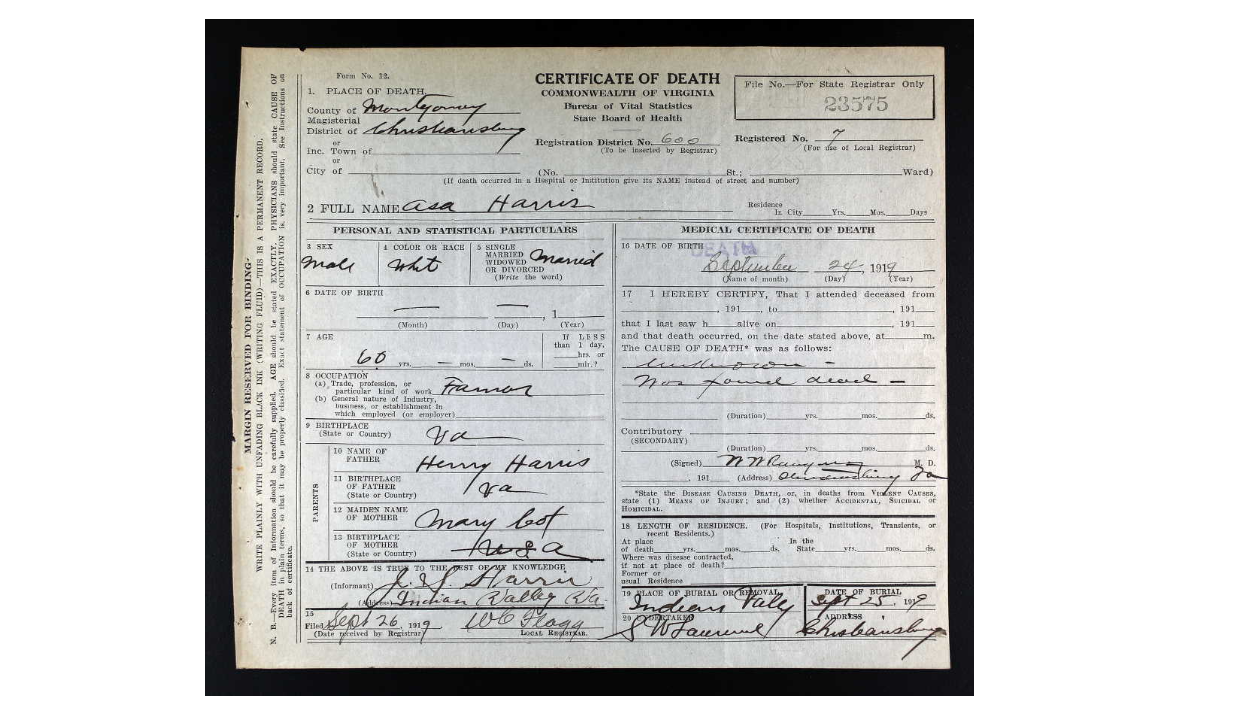 Form No. 12.
CERTIFICATE OF DEATH
COMMONWEALTH OF VIRGINIA
Bureau of Vital Statistics
State Board of Health
File No.—For State Registrar Only
23575
1. PLACE OF DEATH
County of Montgomery
Magisterial
District of Christiansburg
or
Inc. Town of
or
City of (No. St.; Ward)
Registration District No. 600
(To be inserted by Registrar)
Registered No. 7
(For use of Local Registrar)
(If death occurred in a Hospital or Institution give its NAME instead of street and number)
2 FULL NAME Asa Harris
Residence
In City Yrs. Mos. Days
PERSONAL AND STATISTICAL PARTICULARS
3 SEX
Male
4 COLOR OR RACE
Whit
5 SINGLE
MARRIED
WIDOWED
OR DIVORCED
(Write the word)
Married
6 DATE OF BIRTH
— — , 1
(Month) (Day) (Year)
7 AGE
60 yrs. — mos. — ds.
If LESS
than 1 day,
hrs. or
min.?
8 OCCUPATION
(a) Trade, profession, or
particular kind of work
(b) General nature of Industry,
business, or establishment in
which employed (or employer)
9 BIRTHPLACE
(State or Country) Va
PARENTS
10 NAME OF
FATHER Henry Harris
11 BIRTHPLACE
OF FATHER
(State or Country) Va
12 MAIDEN NAME
OF MOTHER Mary
13 BIRTHPLACE
OF MOTHER
(State or Country)
14 THE ABOVE IS TRUE TO THE BEST OF MY KNOWLEDGE
(Informant) Harris
(Address) Indian Valley Va
15
Filed Sept 26, 1919
(Date received by Registrar) LOCAL REGISTRAR.
MEDICAL CERTIFICATE OF DEATH
16 DATE OF BIRTH
DEATH
September 24, 1919
(Name of month) (Day) (Year)
17 I HEREBY CERTIFY, That I attended deceased from
, 191 , to , 191
that I last saw h alive on , 191
and that death occurred, on the date stated above, at m.
The CAUSE OF DEATH* was as follows:
unknown —
Was found dead —
(Duration) yrs. mos. ds.
Contributory
(SECONDARY)
(Duration) yrs. mos. ds.
(Signed) M. D.
, 191 (Address) Christiansburg Va
*State the DISEASE CAUSING DEATH, or, in deaths from VIOLENT CAUSES,
state (1) MEANS OF INJURY; and (2) whether ACCIDENTAL, SUICIDAL or
HOMICIDAL.
18 LENGTH OF RESIDENCE. (For Hospitals, Institutions, Transients, or
recent Residents.)
At place In the
of death yrs. mos. ds. State yrs. mos. ds.
Where was disease contracted,
if not at place of death?
Former or
usual Residence
19 PLACE OF BURIAL OR REMOVAL
Indian Vally
DATE OF BURIAL
Sept 25, 1919
20 UNDERTAKER
ADDRESS
Christiansburg
MARGIN RESERVED FOR BINDING
WRITE PLAINLY WITH UNFADING BLACK INK (WRITING FLUID)—THIS IS A PERMANENT RECORD.
N. B.—Every item of Information should be carefully supplied. AGE should be stated EXACTLY. PHYSICIANS should state CAUSE OF
DEATH in plain terms, so that it may be properly classified. Exact statement of OCCUPATION is very important. See Instructions on
back of certificate.